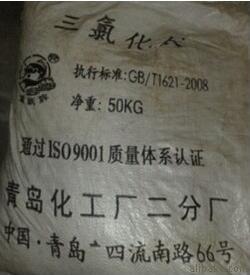 三氯化
执行标准:GB/T1621-2008
净重:50KG
通过ISO9001质量体系认证
青岛化工厂二分厂
中国·青岛 四流南路66号